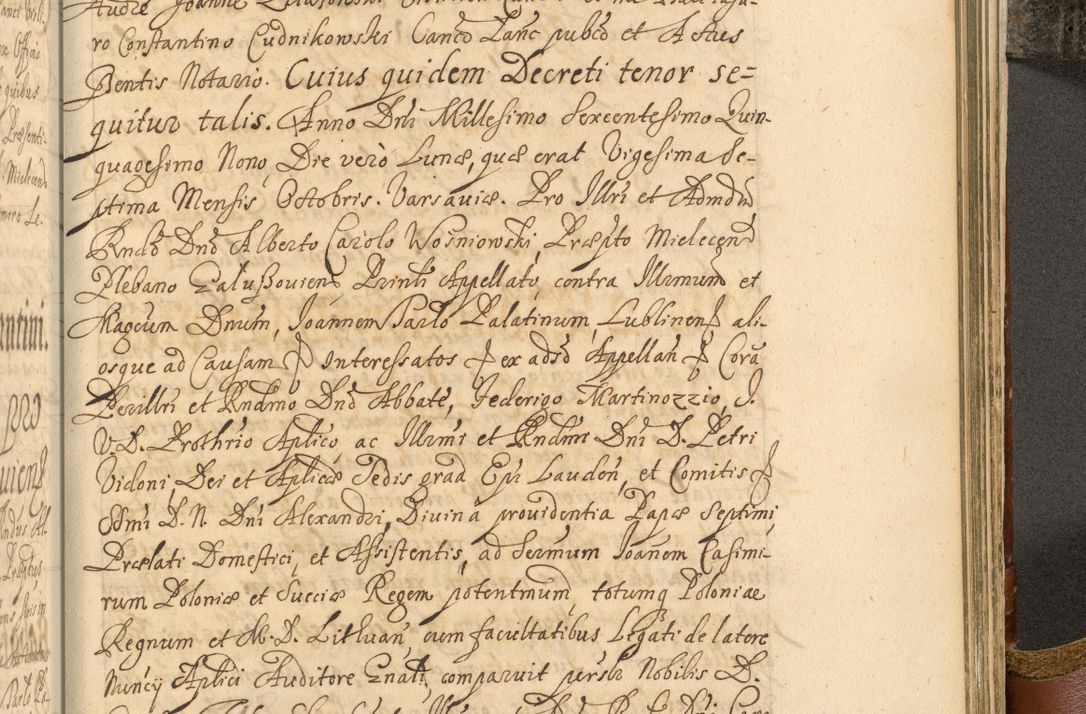 ro Constantino Cudnikowski Cancd Lanc pubcd et Actus
Pentis Notario. Cuius quidem Decreti tenor se=
quitur talis. Anno Dni Millesimo Sexcentesimo Quin-
quagesimo Nono, Die verò Lunæ, quæ erat Vigesima Se-
ptima Mensis Octobris. Varsaviæ. Pro Illri et Admdu
Rndo Dno Alberto Carolo Wośniowski, Præpto Mielecen
Plebano Galussovien Prinli Appellato, contra Illrmum et
Magcum Dnum, Joannem Tarlo Palatinum, Lublinen, ali-
osque ad Causam Interessatos ex adso Appellan Corã
Perillri et Rndmo Dno Abbate, Federigo Martinozzio, J.
V. D. Prothrio Aplico, ac Illrmi et Rndmi Dni D. Petri
Vidoni, Dei et Aplicæ Sedis grad Epi Lauden, et Comitis
Sdmi D. N. Dni Alexandri, Divina providentia Papæ Septimi
Prælati Domestici, et Assistentis, ad Sermum Joanem Casimi-
rum Poloniæ et Sueciæ Regem potentmum, totumq Poloniae
Regnum et M. D. Lithuan, cum facultatibus Legati de latere
Nuncij Aplici Auditore Gnali, comparuit perslr Nobilis D.